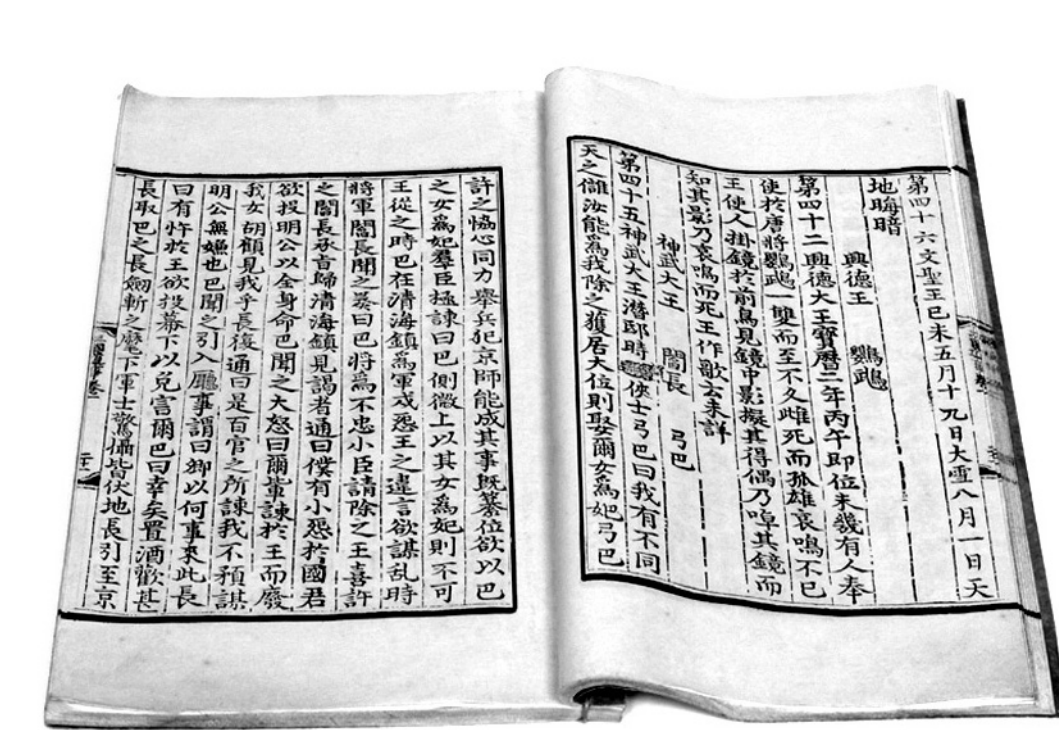 第四十六文聖王已未五月十九日大雪八月一日天
地晦暗
興德王 鸚鵡
第四十二興德大王寶曆二年丙午即位未幾有人奉
使於唐將鸚鵡一雙而至不久雌死而孤雄哀鳴不已
王使人掛鏡於前鳥見鏡中影擬其得偶乃啅其鏡而
知其影乃哀鳴而死王作歌云未詳
神武大王 閻長 弓巴
第四十五神武大王潛邸時俠士弓巴曰我有不同
天之讎汝能爲我除之獲居大位則娶爾女爲妃弓巴
許之恊心同力舉兵犯京師能成其事旣簒位欲以巴
之女爲妃羣臣極諫曰巴側微上以其女爲妃則不可
王從之時巴在清海鎮爲軍戎怨王之違言欲謀乱時
將軍閻長聞之奏曰巴將爲不忠小臣請除之王喜許
之閻長承旨歸清海鎮見謁者通曰僕有小怨於國君
欲投明公以全身命巴聞之大怒曰爾輩諫於王而廢
我女胡顧見我乎長復通曰是百官之所諫我不預謀
明公無嫌也巴聞之引入廳事謂曰卿以何事來此長
曰有忤於王欲投幕下以免害爾巴曰幸矣置酒歡甚
長取巴之長劒斬之麾下軍士驚懾皆伏地長引至京